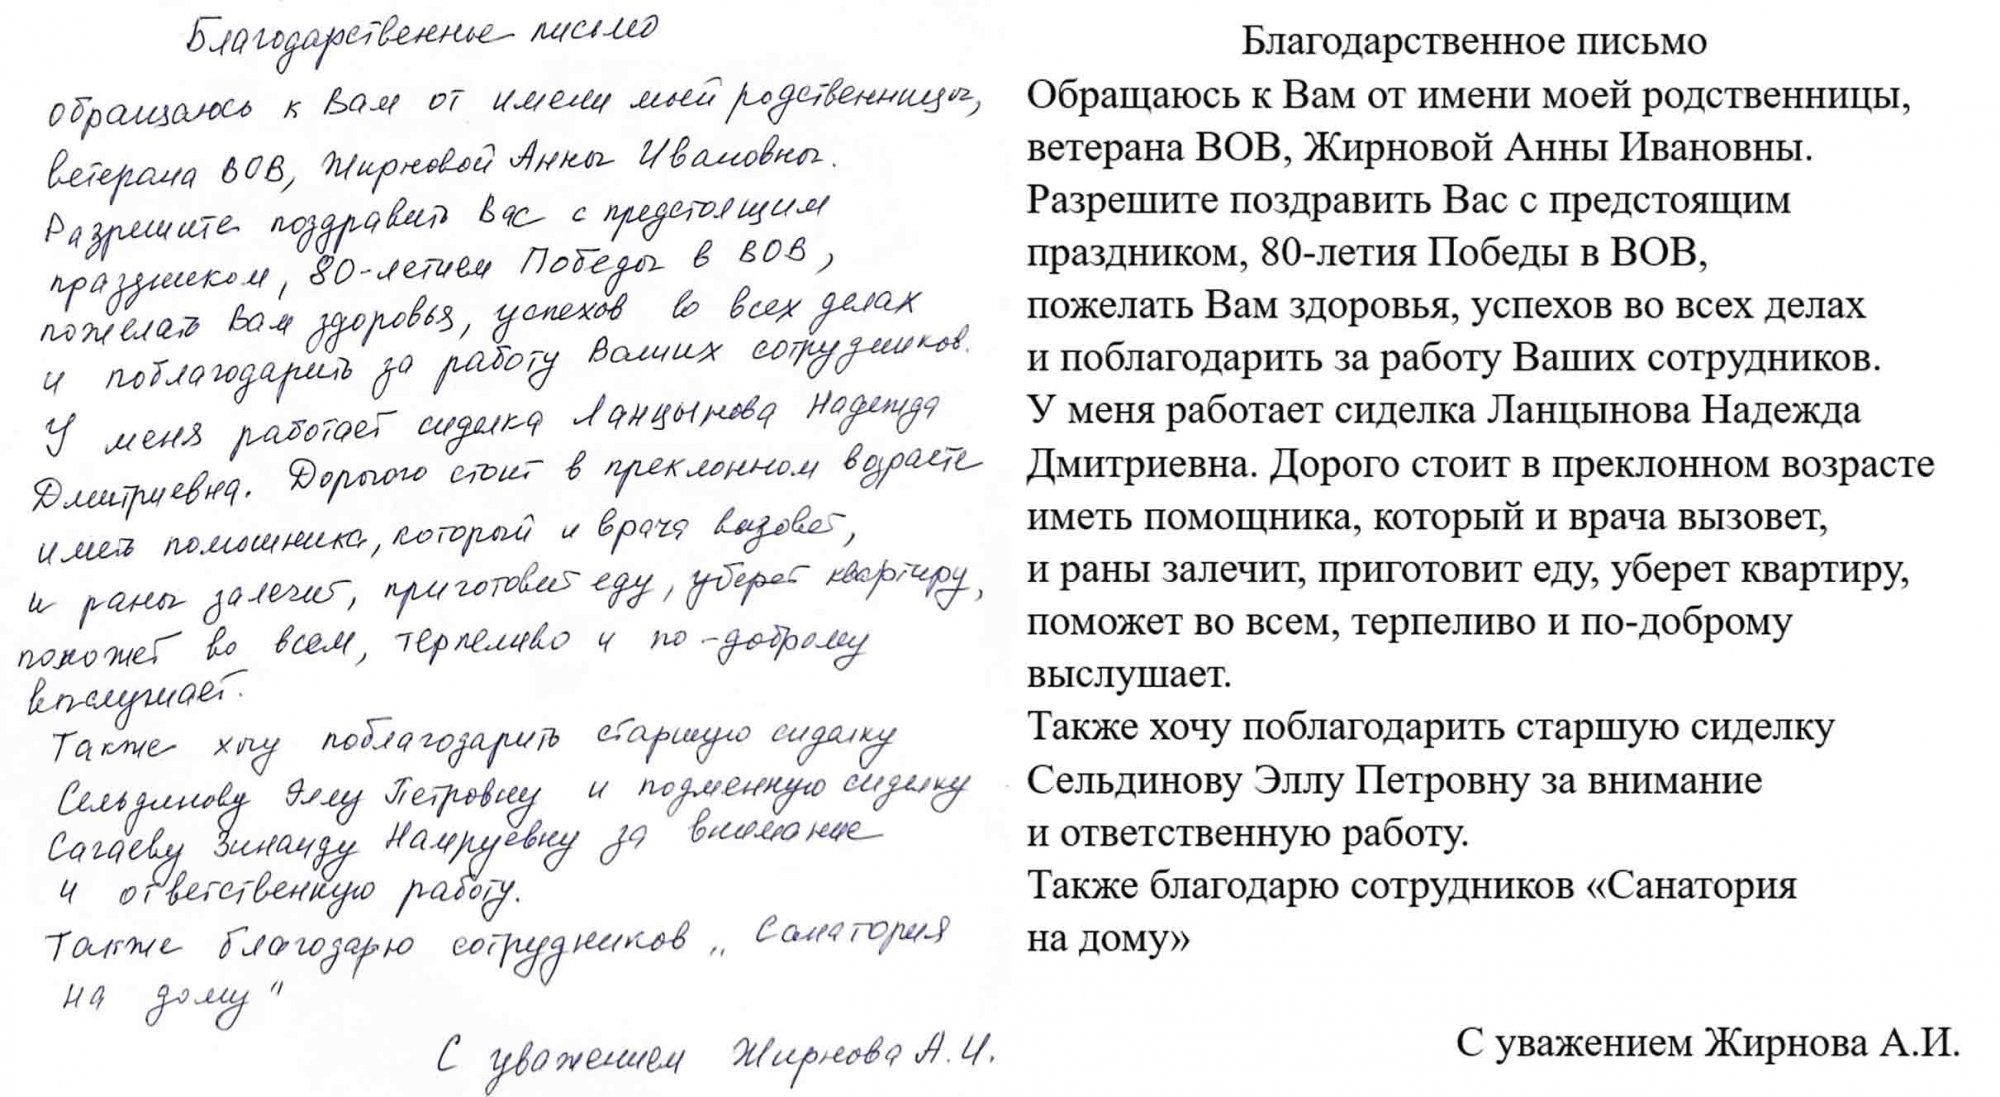 Благодарственное письмо
обращаюсь к Вам от имени моей родственницы,
ветерана ВОВ, Жирновой Анны Ивановны.
Разрешите поздравить Вас с предстоящим
праздником, 80-летием Победы в ВОВ,
пожелать Вам здоровья, успехов во всех делах
и поблагодарить за работу Ваших сотрудников.
У меня работает сиделка Ланцынова Надежда
Дмитриевна. Дорогого стоит в преклонном возрасте
иметь помошника, который и врача вызовет,
и раны залечит, приготовит еду, уберет квартиру,
поможет во всем, терпеливо и по-доброму
выслушает.
Также хочу поблагодарить старшую сиделку
Сельдинову Эллу Петровну и подменную сиделку
Сагаеву Зинаиду Намруевну за внимание
и ответственную работу.
Также благодарю сотрудников „Санатория
на дому"
С уважением Жирнова А.И.
Благодарственное письмо
Обращаюсь к Вам от имени моей родственницы,
ветерана ВОВ, Жирновой Анны Ивановны.
Разрешите поздравить Вас с предстоящим
праздником, 80-летия Победы в ВОВ,
пожелать Вам здоровья, успехов во всех делах
и поблагодарить за работу Ваших сотрудников.
У меня работает сиделка Ланцынова Надежда
Дмитриевна. Дорого стоит в преклонном возрасте
иметь помощника, который и врача вызовет,
и раны залечит, приготовит еду, уберет квартиру,
поможет во всем, терпеливо и по-доброму
выслушает.
Также хочу поблагодарить старшую сиделку
Сельдинову Эллу Петровну за внимание
и ответственную работу.
Также благодарю сотрудников «Санатория
на дому»
С уважением Жирнова А.И.